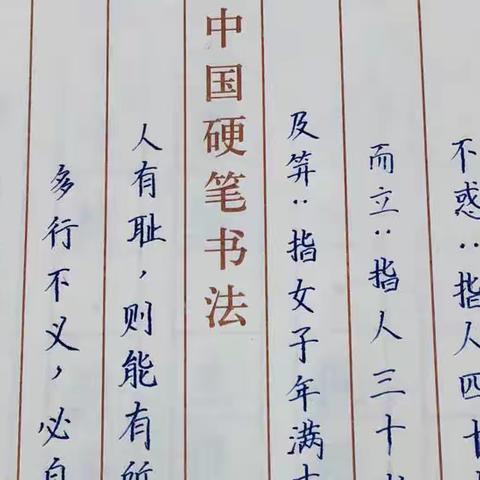 不惑：指人四十
而立：指人三十岁
及笄：指女子年满十
中国硬笔书法
人有耻，则能有所
多行不义，必自